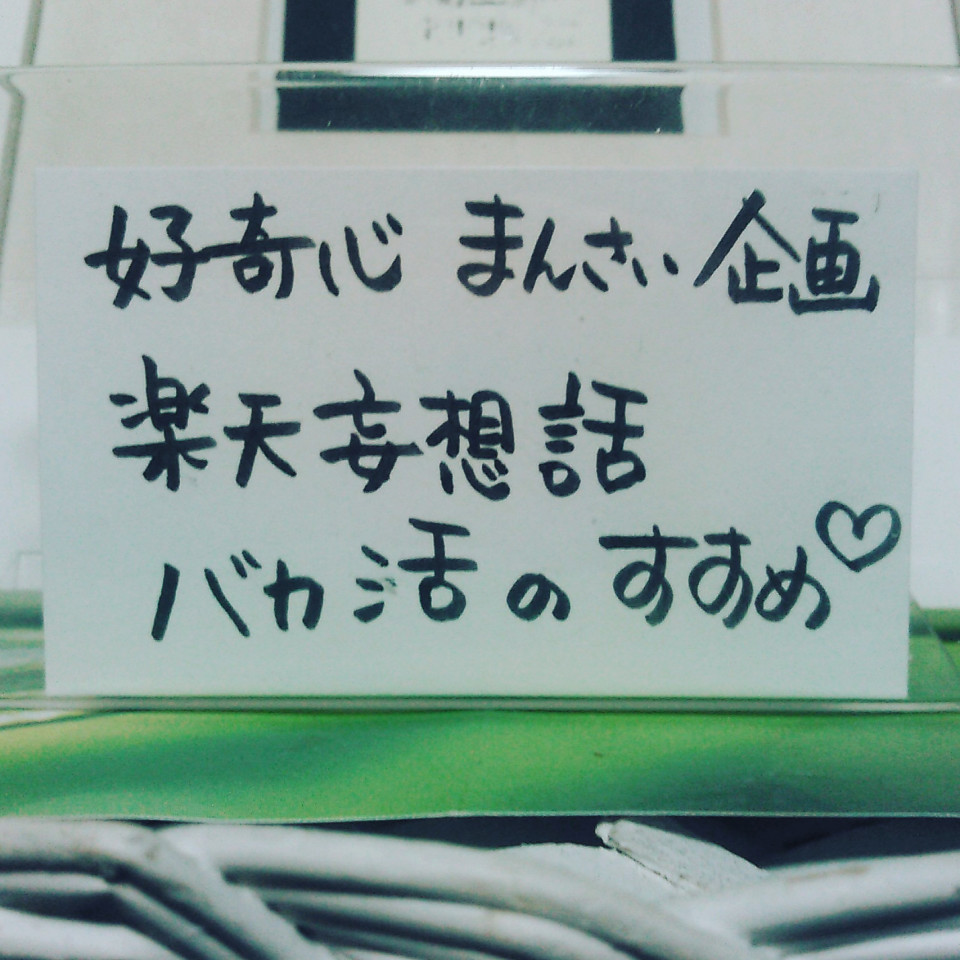 好奇心 まんさい企画
楽天妄想話
バカ活のすすめ♡